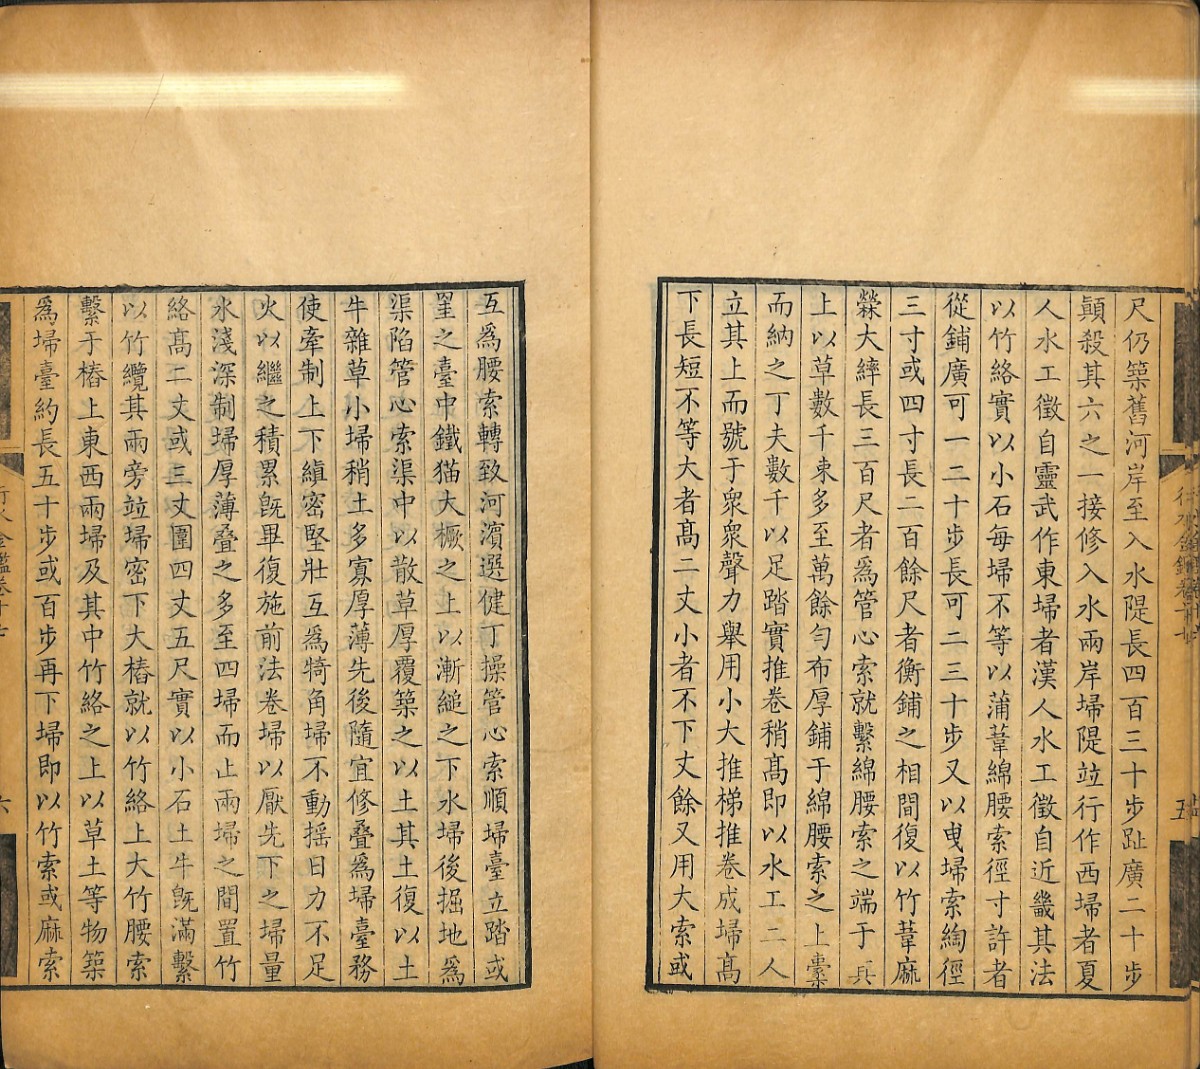 尺仍築舊河岸至入水隄長四百三十步趾廣二十步
顛殺其六之一接修入水兩岸埽隄竝行作西埽者夏
人水工徵自靈武作東埽者漢人水工徵自近畿其法
以竹絡實以小石每埽不等以蒲葦綿腰索徑寸許者
從鋪廣可一二十步長可二三十步又以曳埽索綯徑
三寸或四寸長二百餘尺者衡鋪之相間復以竹葦麻
檾大縴長三百尺者爲管心索就繫綿腰索之端于其
上以草數千束多至萬餘勻布厚鋪于綿腰索之上橐
而納之丁夫數千以足踏實推卷稍髙即以水工二人
立其上而號于衆衆聲力舉用小大推梯推卷成埽髙
下長短不等大者髙二丈小者不下丈餘又用大索或
互爲腰索轉致河濱選健丁操管心索順埽臺立踏或
罣之臺中鐵猫大橛之上以漸縋之下水埽後掘地爲
渠陷管心索渠中以散草厚覆築之以土其土復以土
牛雜草小埽稍土多寡厚薄先後隨宜修叠爲埽臺務
使牽制上下縝密堅壯互爲犄角埽不動揺日力不足
火以繼之積累旣畢復施前法卷埽以厭先下之埽量
水淺深制埽厚薄叠之多至四埽而止兩埽之間置竹
絡髙二丈或三丈圍四丈五尺實以小石土牛旣滿繫
以竹纜其兩旁竝埽密下大樁就以竹絡上大竹腰索
繫于樁上東西兩埽及其中竹絡之上以草土等物築
爲埽臺約長五十步或百步再下埽即以竹索或麻索